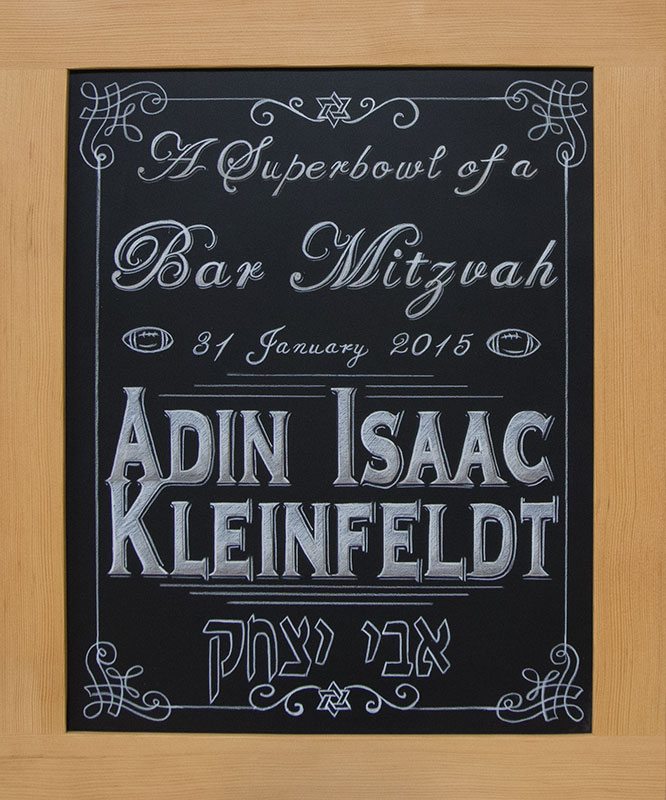 A Superbowl of a
Bar Mitzvah
31 January 2015
ADIN ISAAC
KLEINFELDT
אבי יצחק